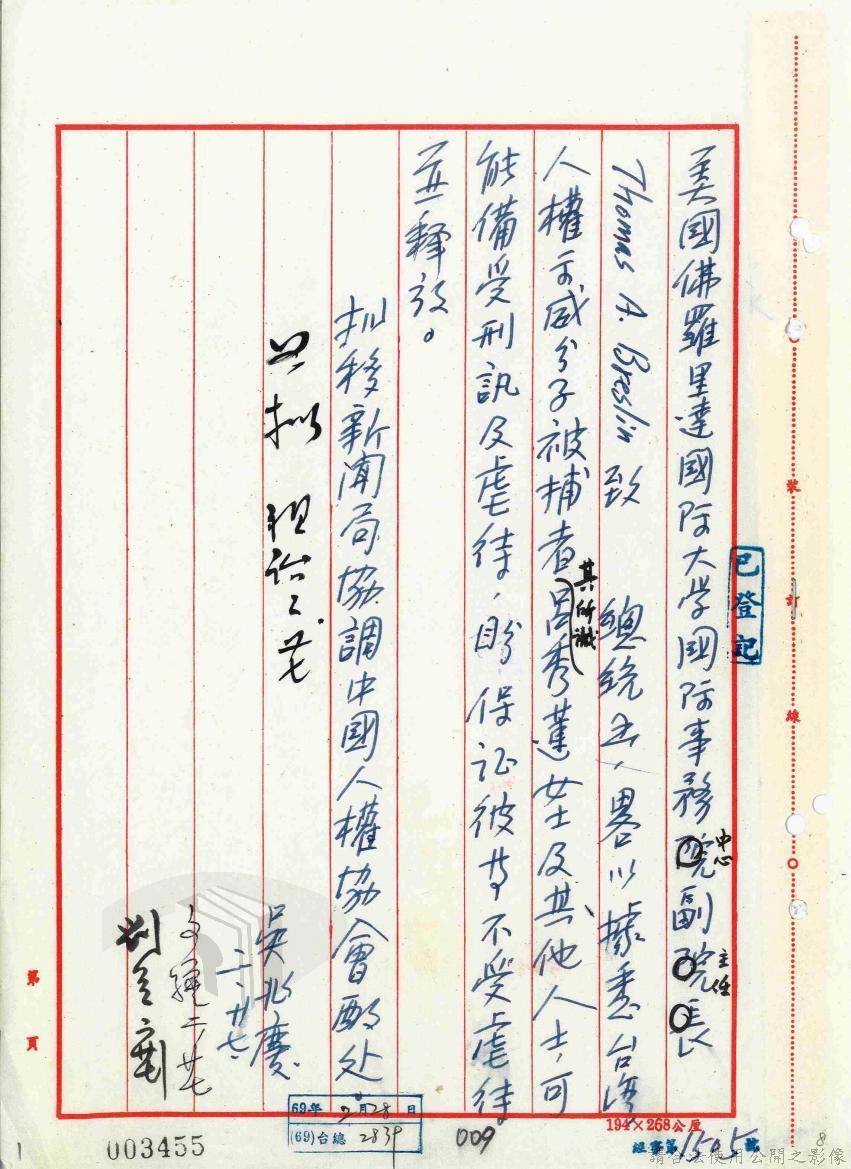 美國佛羅里達國际大学國际事務院副院長
中心
主任
Thomas A. Breslin 致 總統函,畧以據悉台湾
人權示威分子被捕者呂秀蓮女士及其他人士,可
其所識
能備受刑訊及虐待,盼保证彼等不受虐待
並釋放。
擬移新聞局協調中國人權協會酌处
吳兆慶
二、廿七
二、廿七
已登記
裝
訂
線
第
頁
194×268公厘
經寄第1505號
69年2月28日
(69)台總 2839
009
003455
8
請合法使用公開之影像